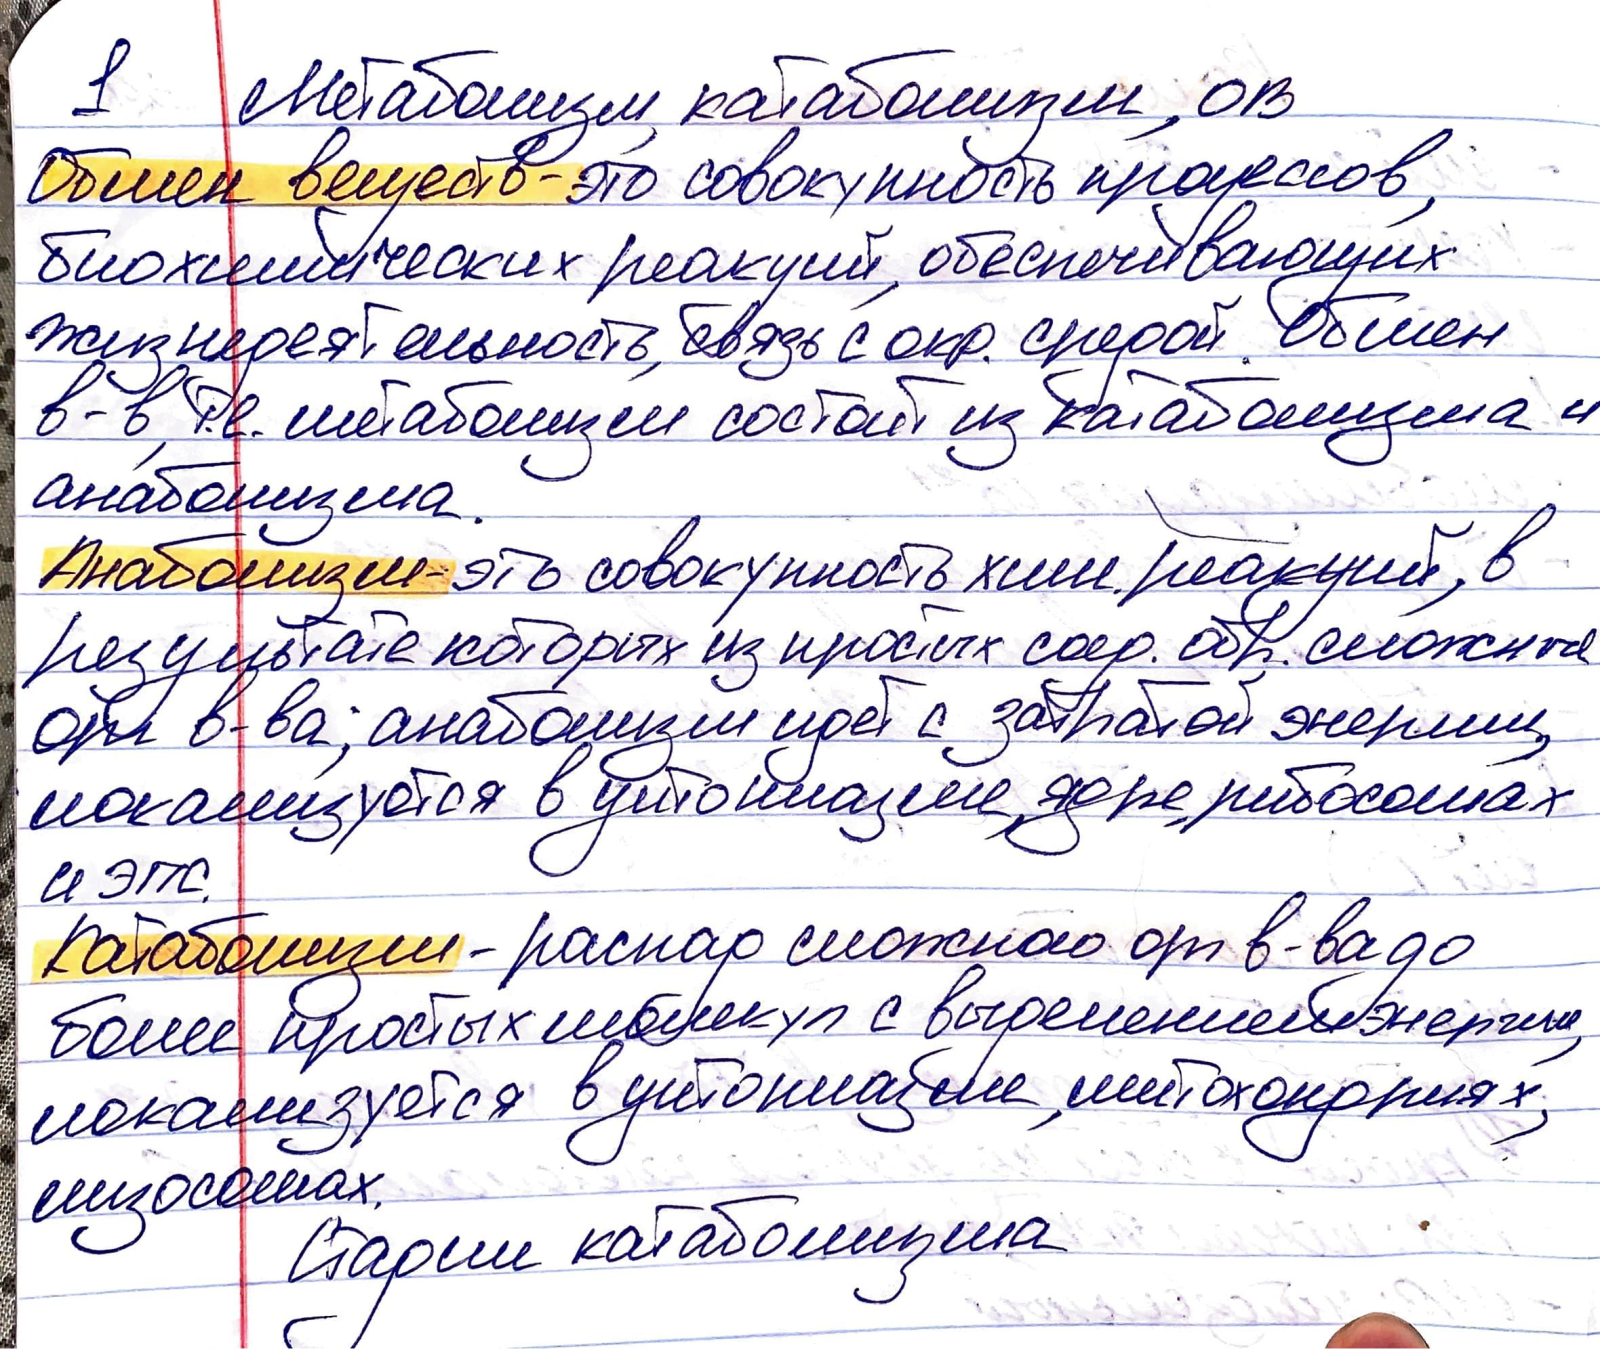 1 Метаболизм, катаболизм, ОВ
Обмен веществ - это совокупность процессов,
биохимических реакций, обеспечивающих
жизнедеятельность, связь с окр. средой. Обмен
в-в, т.е. метаболизм состоит из катаболизма и
анаболизма.
Анаболизм - это совокупность хим. реакций, в
результате которых из простых соед. обр. сложные
орг в-ва; анаболизм идет с затратой энергии,
локализуется в цитоплазме, ядре, рибосомах
и эпс.
Катаболизм - распад сложного орг в-ва до
более простых молекул с выделением энергии,
локализуется в цитоплазме, митохондриях,
лизосомах.
Стадии катаболизма